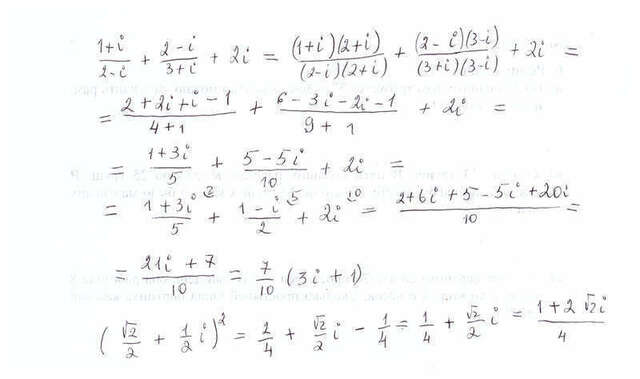 (1+i)/(2-i) + (2-i)/(3+i) + 2i = ((1+i)(2+i))/((2-i)(2+i)) + ((2-i)(3-i))/((3+i)(3-i)) + 2i =
= (2+2i+i-1)/(4+1) + (6-3i-2i-1)/(9+1) + 2i =
= (1+3i)/5 + (5-5i)/10 + 2i =
= (1+3i)/5 ² + (1-i)/2 ⁵ + 2i ¹⁰ = (2+6i+5-5i+20i)/10 =
= (21i+7)/10 = 7/10 (3i+1)
(√2/2 + 1/2 i)² = 2/4 + √2/2 i - 1/4 = 1/4 + √2/2 i = (1+2√2i)/4